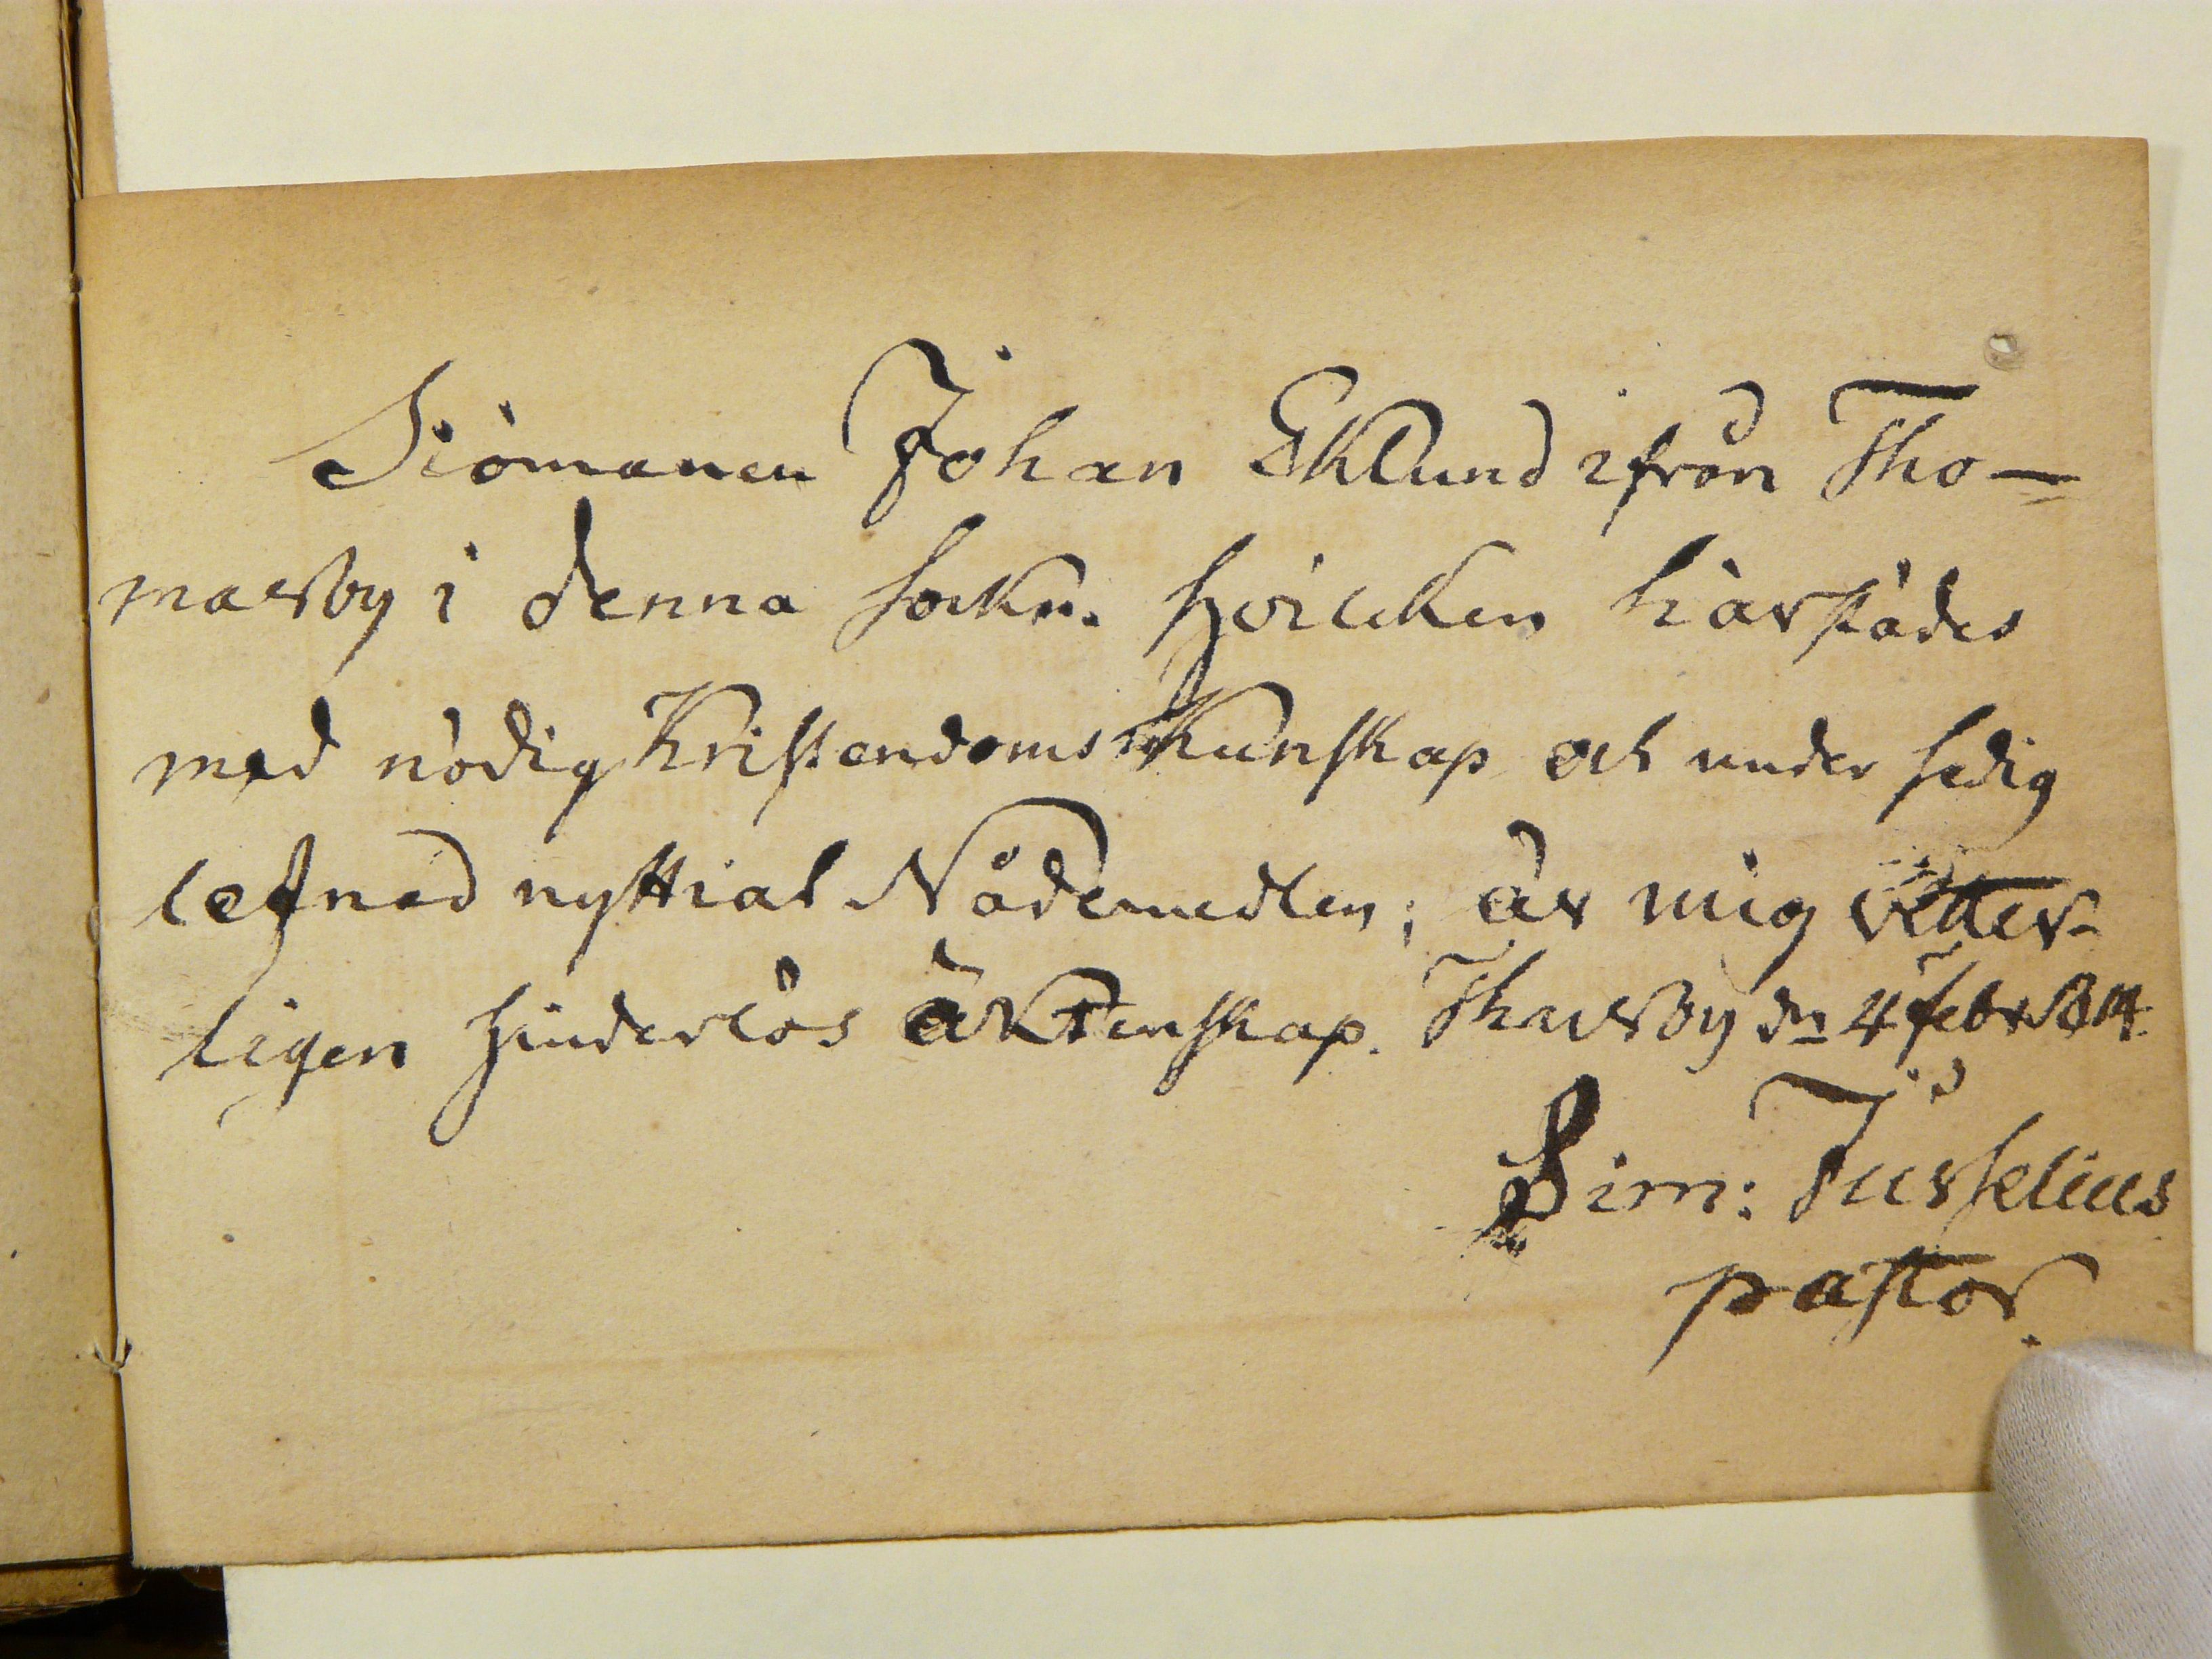 Siömanen Johan Eklund ifrån Tho-
masby i denna Sokn. Hvilcken härstädes
med nödig Kristendoms Kunskap och under sedig
lefnad nyttiat Nådemedlen; är mig vetter-
ligen hinderlös äktenskap. Thusby dn 4 febr 814.
Sim: Jusselius
pastor.